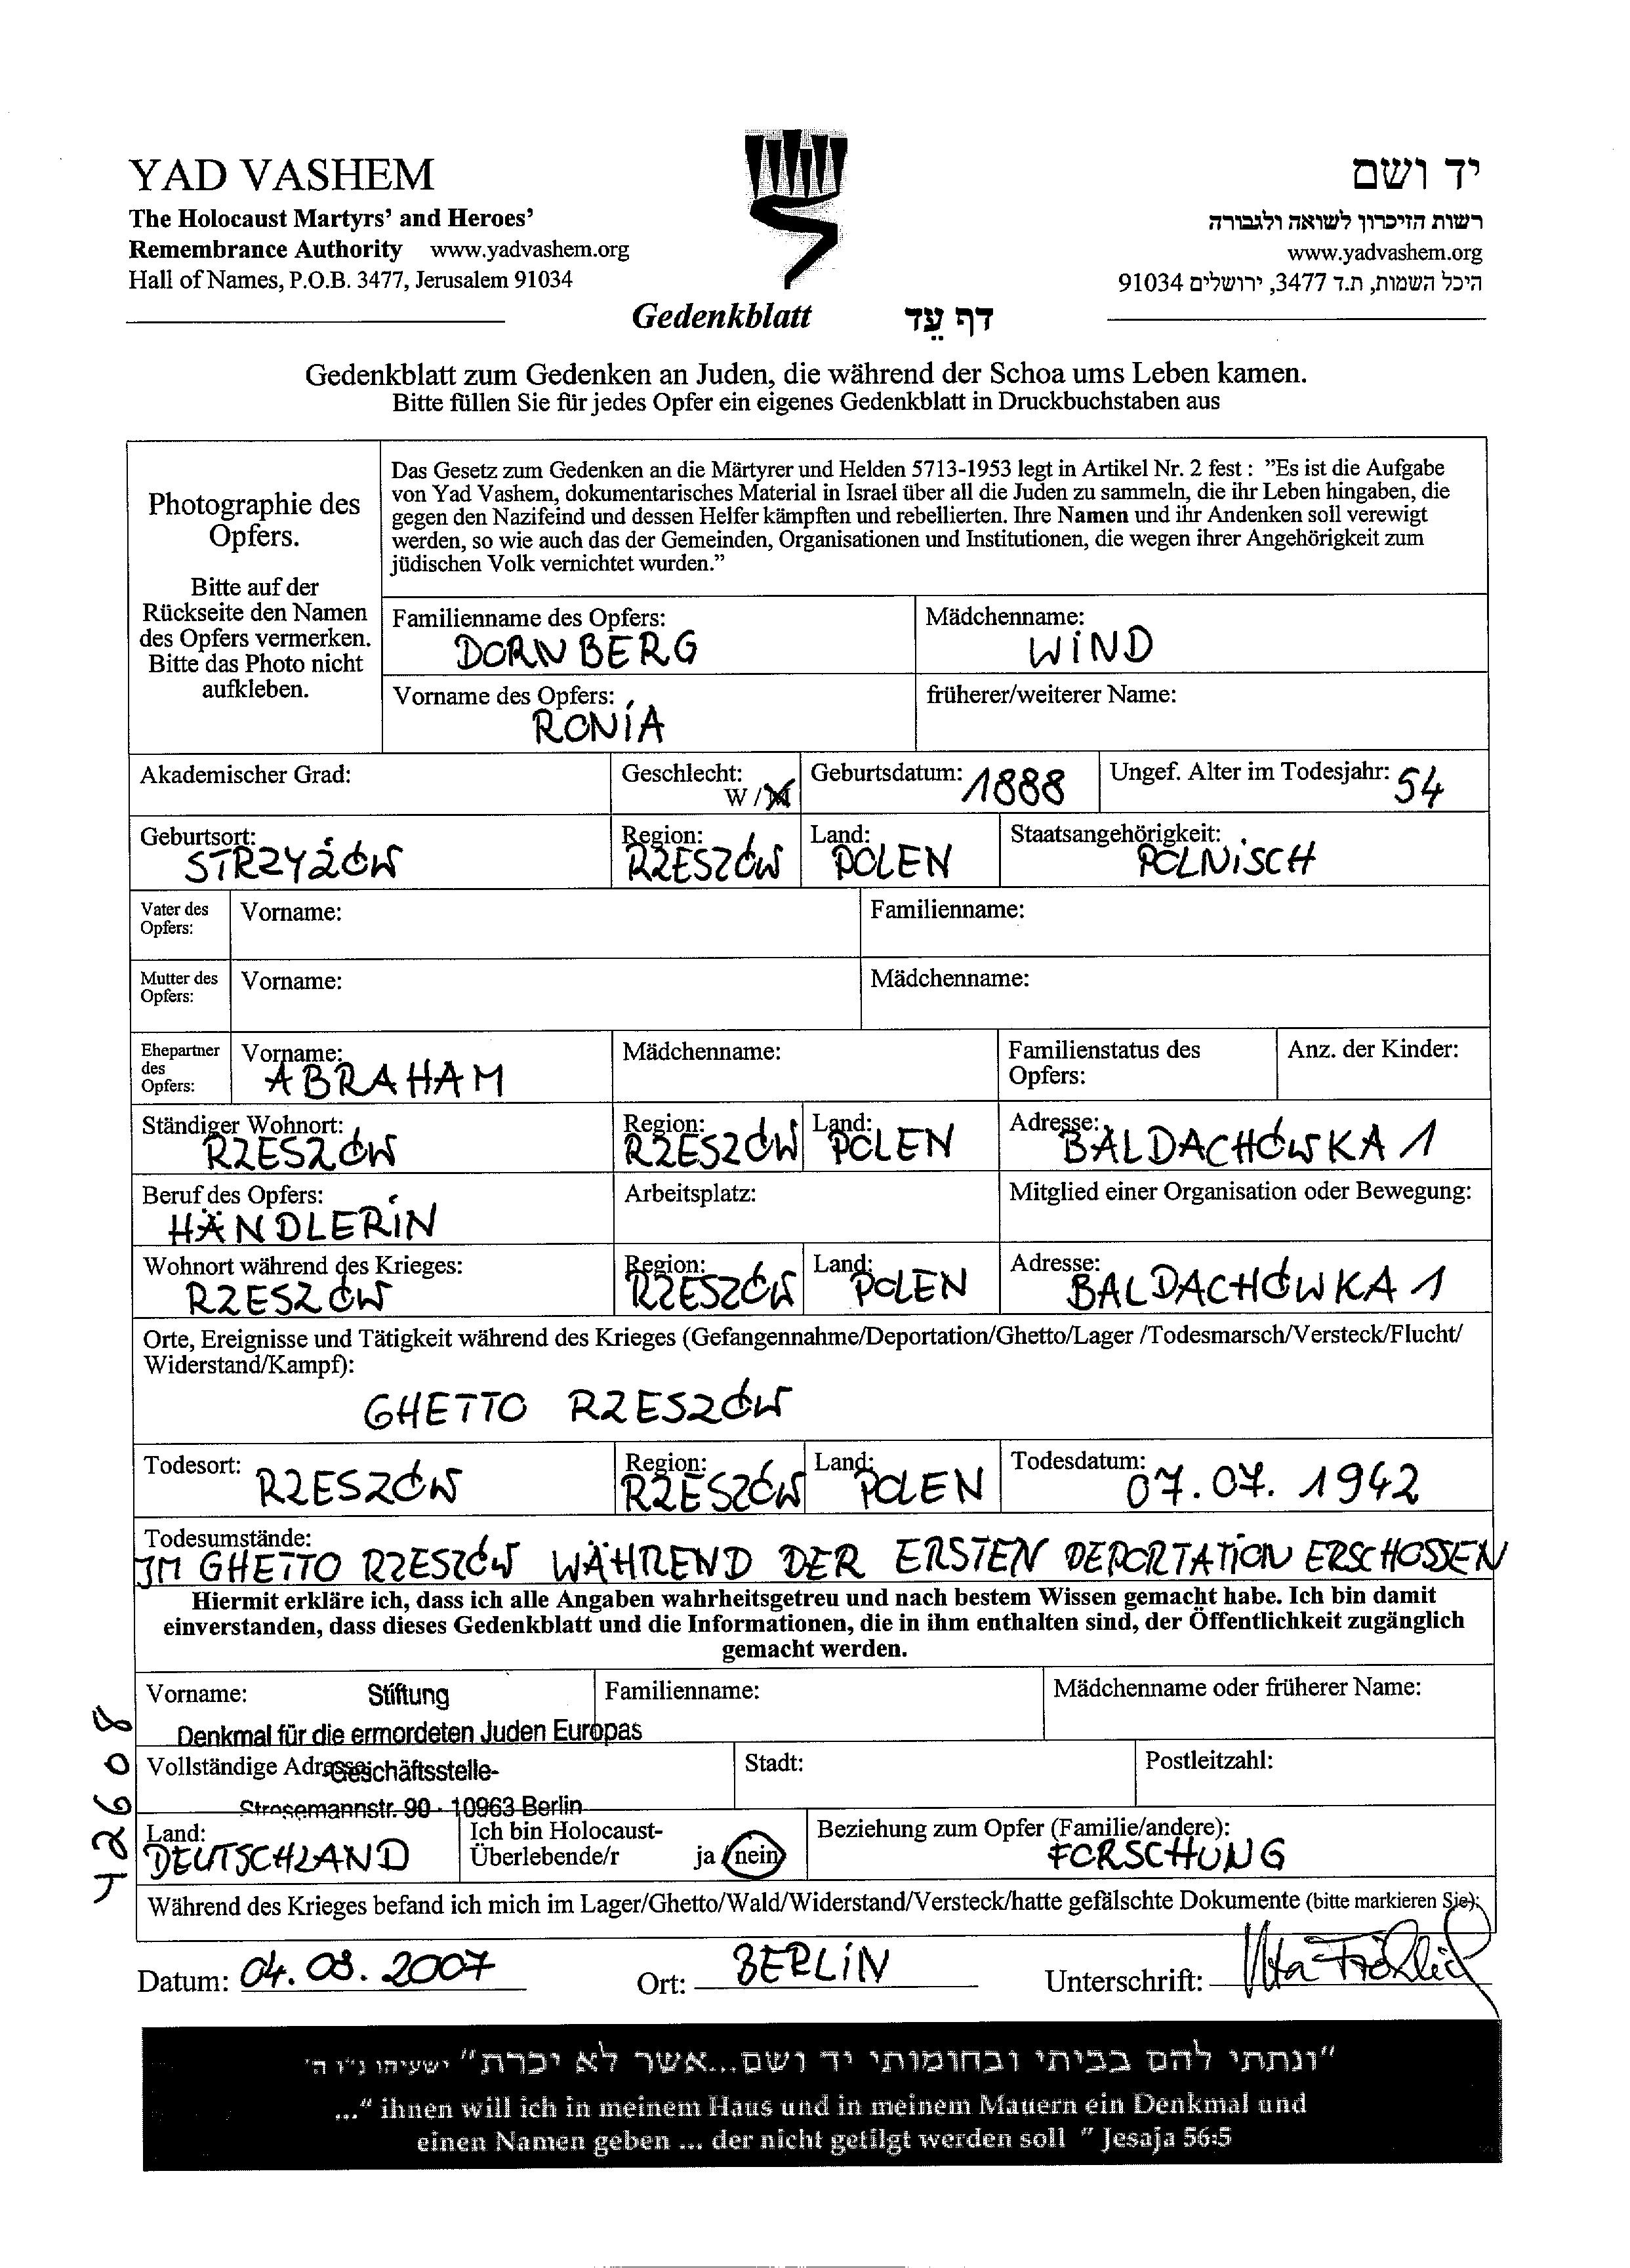 YAD VASHEM
The Holocaust Martyrs' and Heroes'
Remembrance Authority www.yadvashem.org
Hall of Names, P.O.B. 3477, Jerusalem 91034
יד ושם
רשות הזיכרון לשואה ולגבורה
www.yadvashem.org
היכל השמות, ת.ד 3477, ירושלים 91034
Gedenkblatt דף עֵד
Gedenkblatt zum Gedenken an Juden, die während der Schoa ums Leben kamen.
Bitte füllen Sie für jedes Opfer ein eigenes Gedenkblatt in Druckbuchstaben aus
Photographie des
Opfers.
Bitte auf der
Rückseite den Namen
des Opfers vermerken.
Bitte das Photo nicht
aufkleben.
Das Gesetz zum Gedenken an die Märtyrer und Helden 5713-1953 legt in Artikel Nr. 2 fest : "Es ist die Aufgabe
von Yad Vashem, dokumentarisches Material in Israel über all die Juden zu sammeln, die ihr Leben hingaben, die
gegen den Nazifeind und dessen Helfer kämpften und rebellierten. Ihre Namen und ihr Andenken soll verewigt
werden, so wie auch das der Gemeinden, Organisationen und Institutionen, die wegen ihrer Angehörigkeit zum
jüdischen Volk vernichtet wurden."
Familienname des Opfers: Mädchenname:
DORNBERG WIND
Vorname des Opfers: früherer/weiterer Name:
RONIA
Akademischer Grad: Geschlecht: W / M Geburtsdatum: 1888 Ungef. Alter im Todesjahr: 54
Geburtsort: Region: Land: Staatsangehörigkeit:
STRZYŻÓW RZESZÓW POLEN POLNISCH
Vater des Opfers: Vorname: Familienname:
Mutter des Opfers: Vorname: Mädchenname:
Ehepartner des Opfers: Vorname: Mädchenname: Familienstatus des Opfers: Anz. der Kinder:
ABRAHAM
Ständiger Wohnort: Region: Land: Adresse:
RZESZÓW RZESZÓW POLEN BALDACHÓWSKA 1
Beruf des Opfers: Arbeitsplatz: Mitglied einer Organisation oder Bewegung:
HÄNDLERIN
Wohnort während des Krieges: Region: Land: Adresse:
RZESZÓW RZESZÓW POLEN BALDACHÓWKA 1
Orte, Ereignisse und Tätigkeit während des Krieges (Gefangennahme/Deportation/Ghetto/Lager /Todesmarsch/Versteck/Flucht/
Widerstand/Kampf):
GHETTO RZESZÓW
Todesort: Region: Land: Todesdatum:
RZESZÓW RZESZÓW POLEN 07.07.1942
Todesumstände:
IM GHETTO RZESZÓW WÄHREND DER ERSTEN DEPORTATION ERSCHOSSEN
Hiermit erkläre ich, dass ich alle Angaben wahrheitsgetreu und nach bestem Wissen gemacht habe. Ich bin damit
einverstanden, dass dieses Gedenkblatt und die Informationen, die in ihm enthalten sind, der Öffentlichkeit zugänglich
gemacht werden.
Vorname: Stiftung Familienname: Mädchenname oder früherer Name:
Denkmal für die ermordeten Juden Europas
Vollständige Adresse: Geschäftsstelle- Stadt: Postleitzahl:
Stresemannstr. 90 · 10963 Berlin
Land: Ich bin Holocaust- Beziehung zum Opfer (Familie/andere):
DEUTSCHLAND Überlebende/r ja / nein FORSCHUNG
Während des Krieges befand ich mich im Lager/Ghetto/Wald/Widerstand/Versteck/hatte gefälschte Dokumente (bitte markieren Sie):
Datum: 04.08.2007 Ort: BERLIN Unterschrift: Uta Fröhlich
42608
"ונתתי להם בביתי ובחומותי יד ושם...אשר לא יכרת" ישעיהו נ"ו ה'
..." ihnen will ich in meinem Haus und in meinem Mauern ein Denkmal und
einen Namen geben ... der nicht getilgt werden soll " Jesaja 56:5